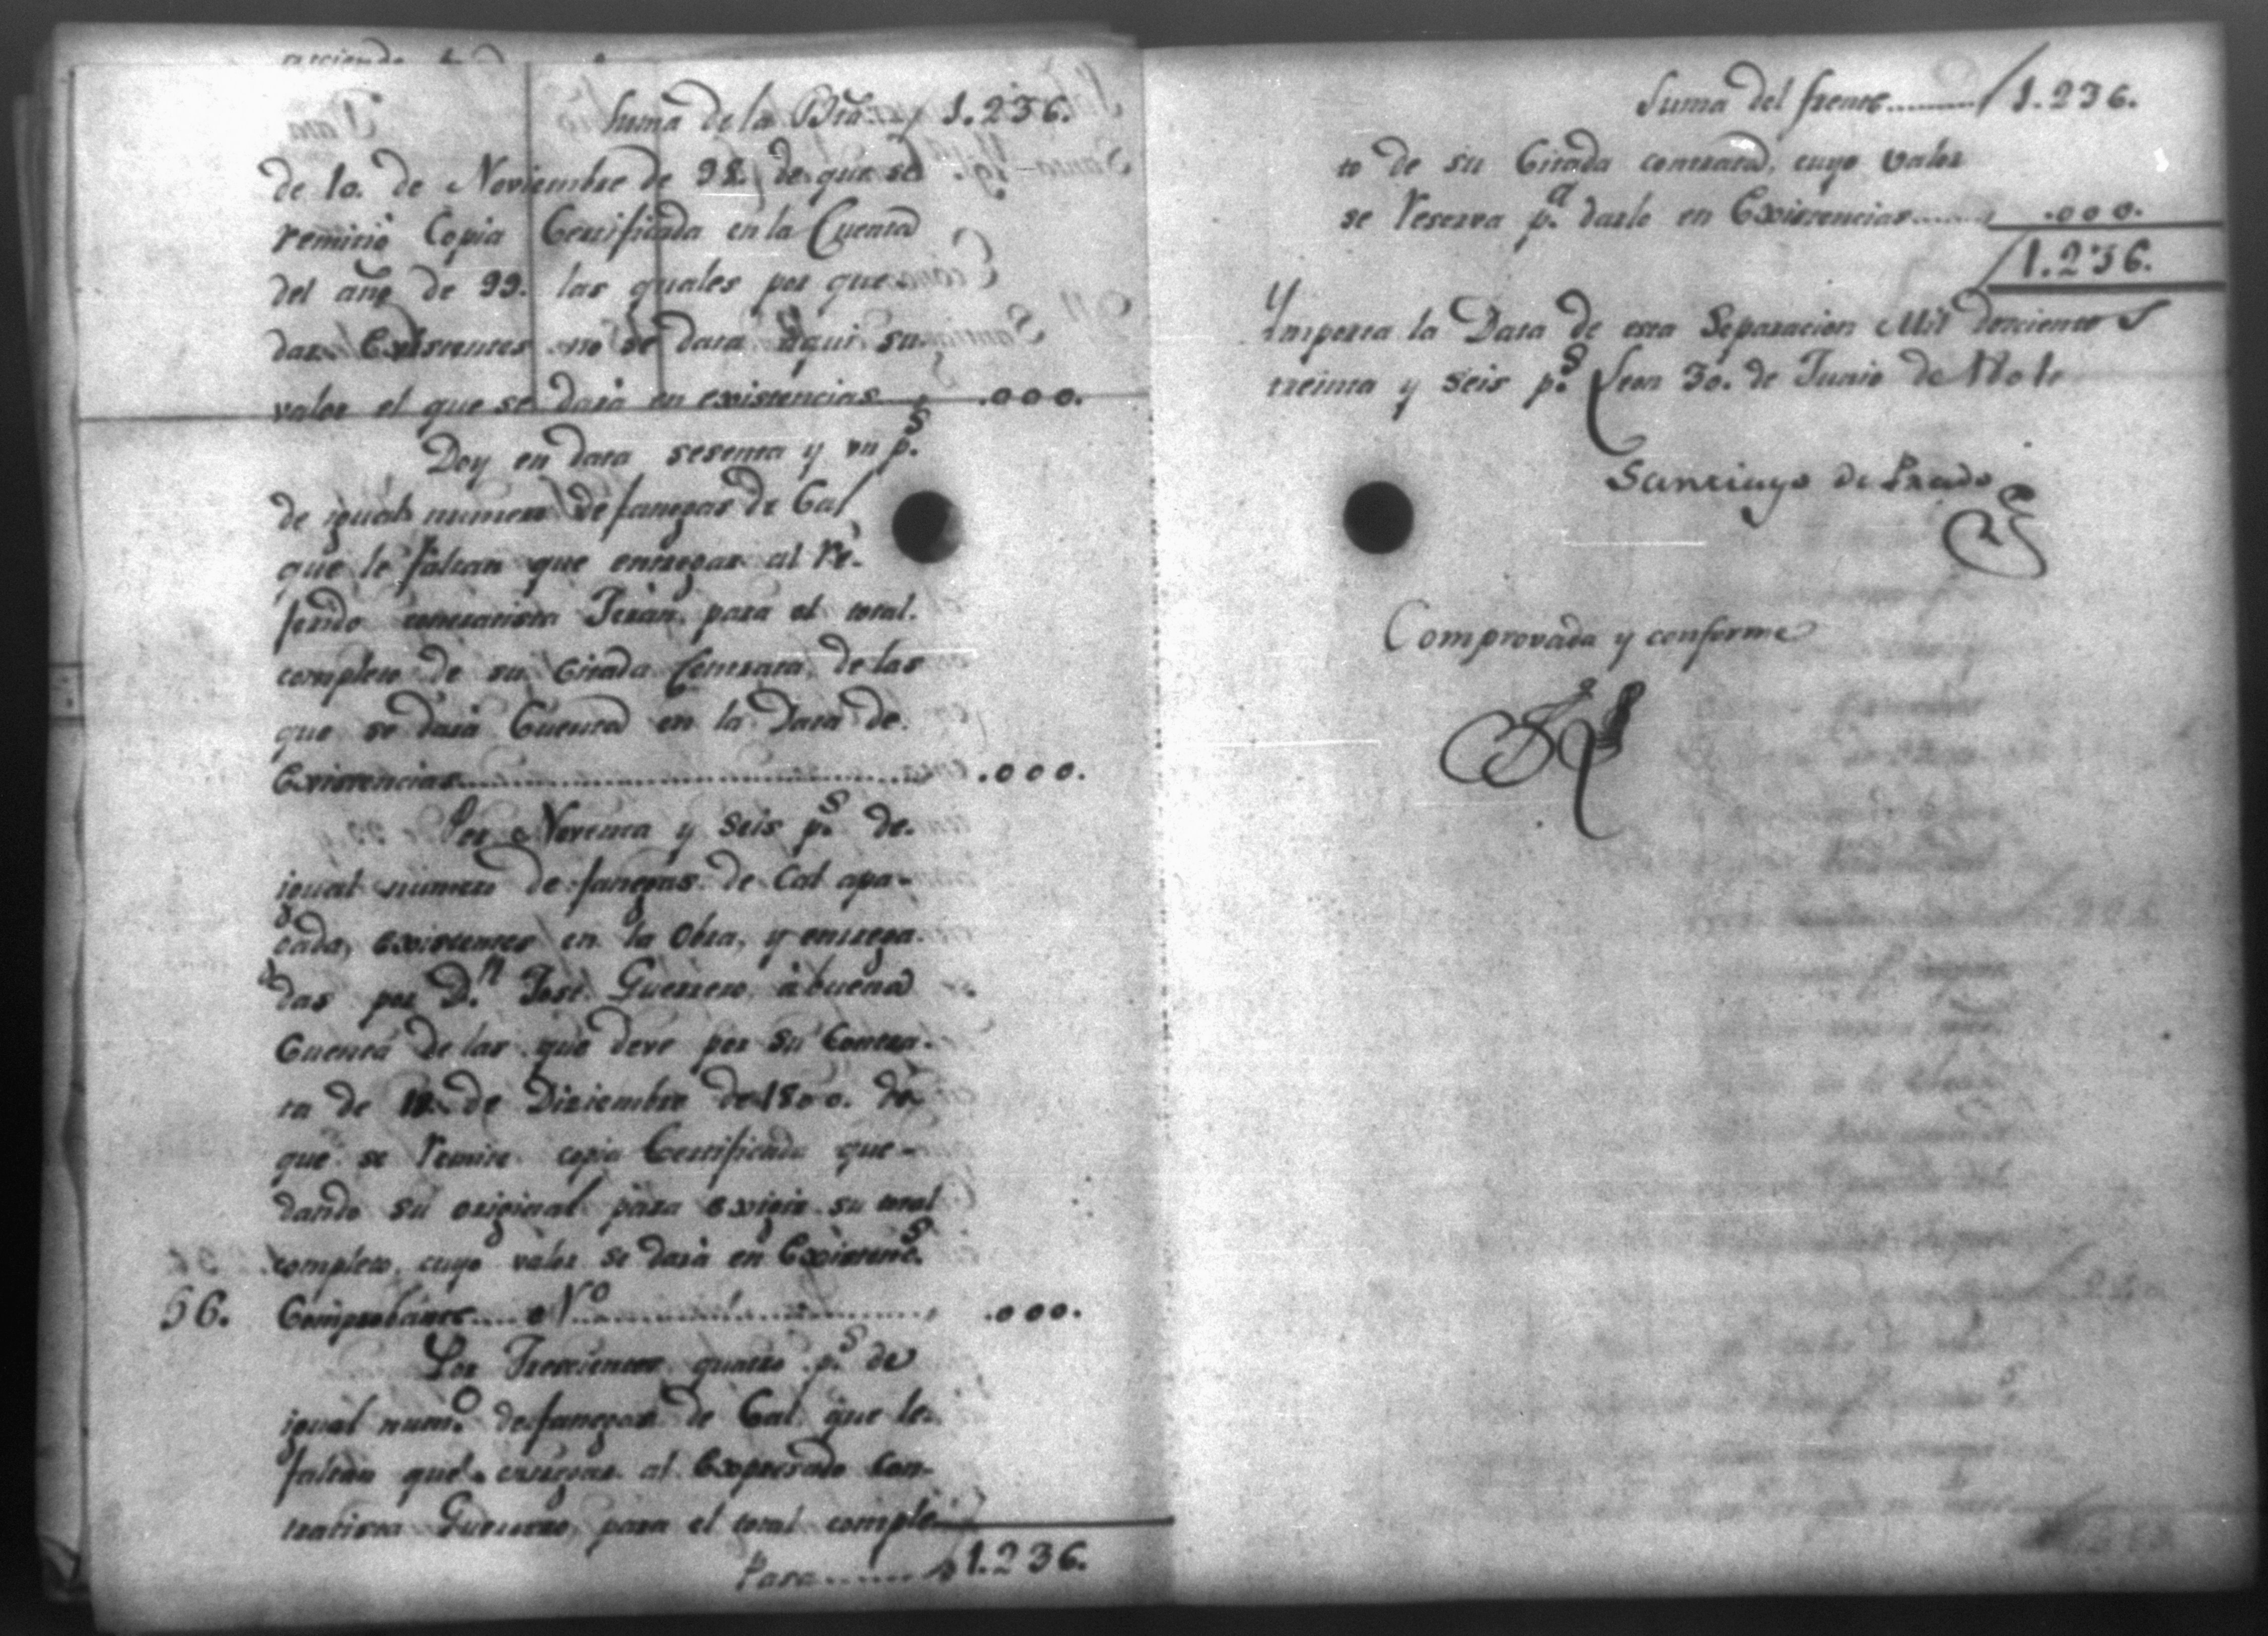 Suma de la Bta... / 1.236.
de 10. de Noviembre de 98. de que se
remitio Copia Certificada en la Cuenta
del año de 99. las quales por que-
dar Existentes no se data aqui su
valor el que se dará en existencias .000.
Doy en data sesenta y un p.s
de igual numero de fanegas de Cal
que le faltan que entregar al re-
ferido contratista Terán, para el total
completo de su Citada Contrata, de las
que se dará Cuenta en la Data de
Existencias........ .000.
Por Noventa y Seis p.s de
igual numero de fanegas de Cal apa-
gada, existentes en la Obra, y entrega-
das por D.n José Guerrero, á buena
Cuenta de las que deve por su Contra-
ta de de Diziembre de 1800. de
que se remite copia Certificada que-
dando su original para exigir su total
completo, cuyo valor se dará en Existenc.s
56. Comprobante.... N.o ........ .000.
Por Trescientos quatro p.s de
igual num.o de fanegas de Cal que le
faltan que entregar al Expresado Con-
tratista Guerrero, para el total comple-
Pasa....... / 1.236.
Suma del frente......... / 1.236.
to de su Citada contrata, cuyo valor
se reserva p.a darlo en Existencias...... .000.
/ 1.236.
Ymporta la Data de esta Separacion Mil doscientos
treinta y seis p.s Leon 30. de Junio de
Santiago de Prado
Comprovada y conforme